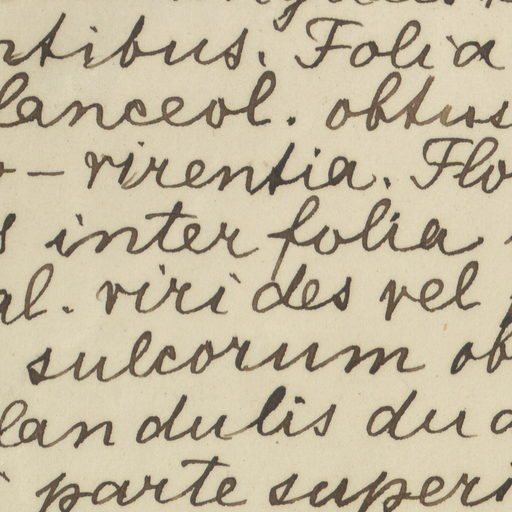 rtibus. Folia
lanceol. obtus
o-virentia. Flo
s inter folia
al. virides vel
sulcorum ob
landulis du
parte superi